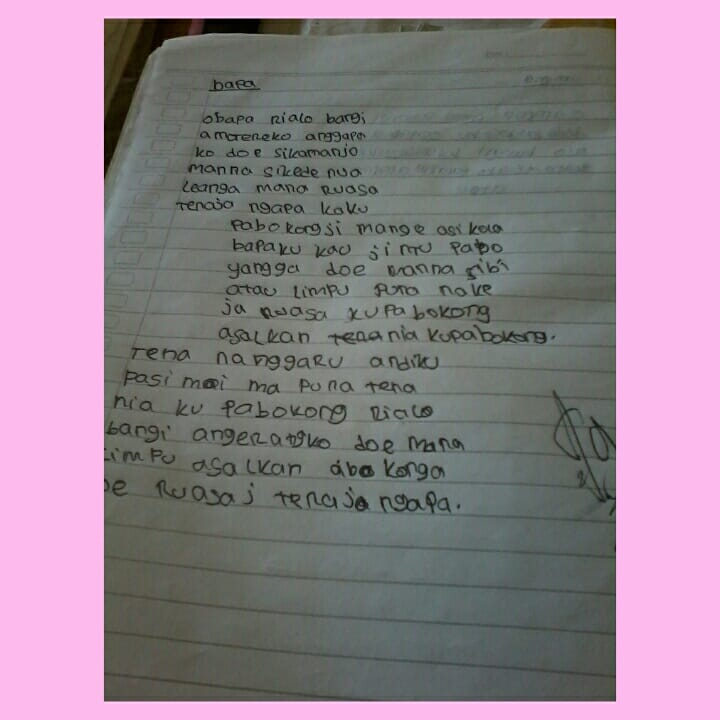 bapa
obapa rialo bangi
amotereko anggapa
ko doe sikamanjo
manna sikede nua
leanga mana ruasa
tenaja ngapa kaku
pabokongji mange asikola
bapaku kau ji mu papo
yangga doe manna sibi
atau limpu puna nake
ja ruasa kupabokong
asalkan tenania kupabokong.
tena nanggaru andiku
pasi moi ma puna tena
nia ku pabokong rialo
bangi angerangko doe mana
limpu asalkan abokonga
oe ruasaj tenaja ngapa.